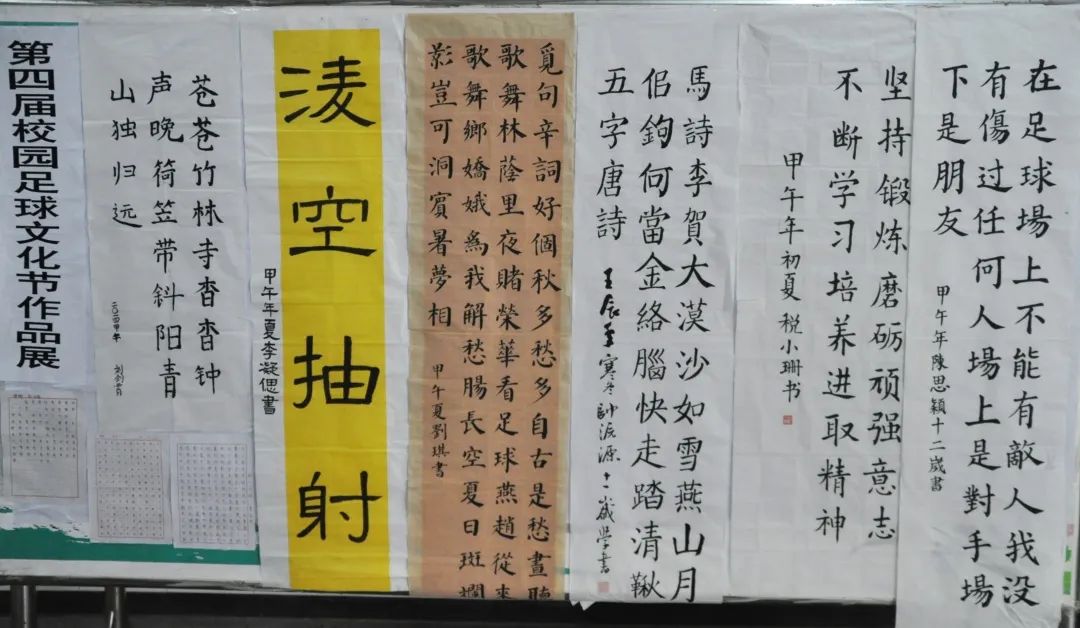 第四届校园足球文化节作品展
苍苍竹林寺杳杳钟
声晚荷笠带斜阳青
山独归远
淩空抽射
甲午年夏李凝偲書
覓句辛詞好個秋多愁多自古是愁晝聽
歌舞林蔭里夜賭榮華看足球燕趙從來
歌舞鄉嬌娥為我解愁腸長空夏日斑斕
影豈可洞賓暑夢相
甲午夏劉琪書
馬詩李賀大漠沙如雪燕山月
佀鉤何當金絡腦快走踏清鞦
五字唐詩
坚持锻炼磨砺顽强意志
不断学习培养进取精神
甲午年初夏税小珊书
在足球場上不能有敵人我没
有傷过任何人場上是對手場
下是朋友
甲午年陳思穎十二歲書